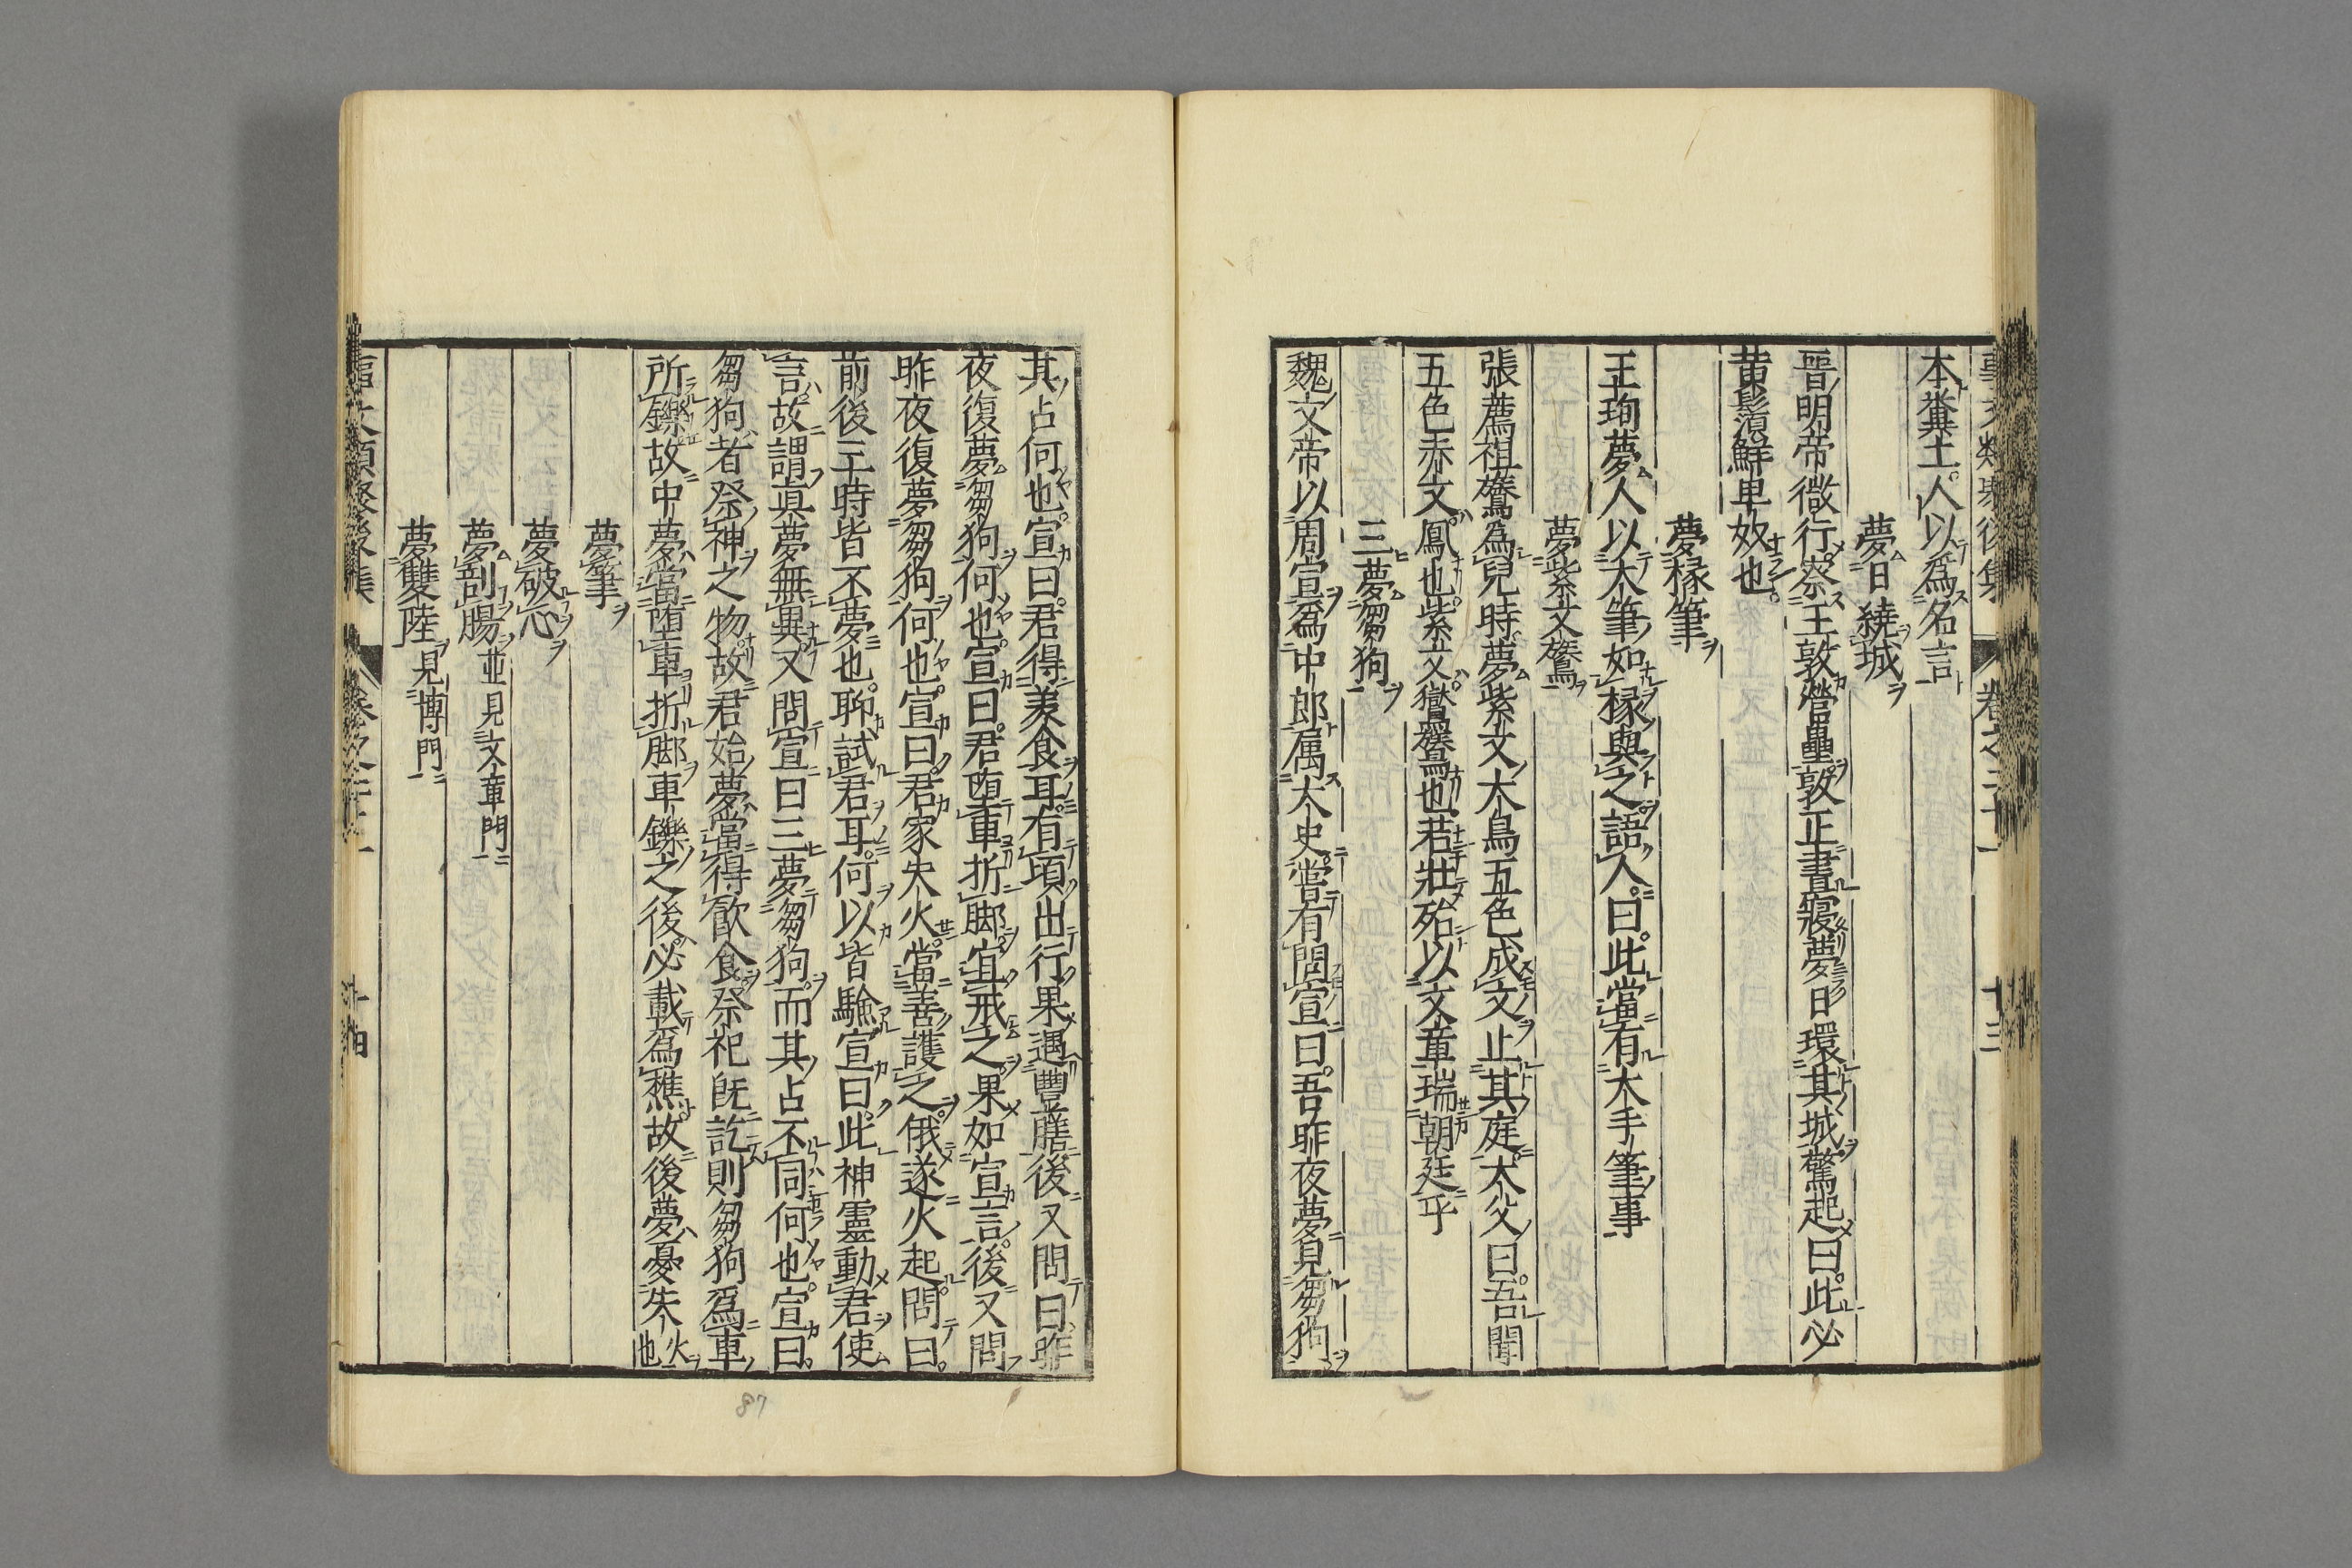 本糞土人以爲名言
夢日繞城
晉明帝微行察王敦營壘敦正晝寢夢日環其城驚起曰此必
黄鬚鮮卑奴也
夢椽筆
王珣夢人以大筆如椽與之語人曰此當有大手筆事
夢紫文鸑
張薦祖鷟爲兒時夢紫文大鳥五色成文止其庭大父曰吾聞
五色赤文鳳也紫文鸑鷟也若壯殆以文章瑞朝廷乎
三夢芻狗
魏文帝以周宣爲中郎属大史嘗有問宣曰吾昨夜夢見芻狗
其占何也宣曰君得美食耳有頃出行果遇豐膳後又問曰昨
夜復夢芻狗何也宣曰君堕車折脚宜戒之果如宣言後又問
昨夜復夢芻狗何也宣曰君家失火當善護之俄遂火起問曰
前後三時皆不夢也聊試君耳何以皆驗宣曰此神靈動君使
言故謂眞夢無異又問宣曰三夢芻狗而其占不同何也宣曰
芻狗者祭神之物故君始夢當得飲食祭祀既訖則芻狗爲車
所轢故中夢當堕車折脚車轢之後必載爲樵故後夢憂失火也
夢筆
夢破心
夢剖腸並見文章門
夢雙陸見博門